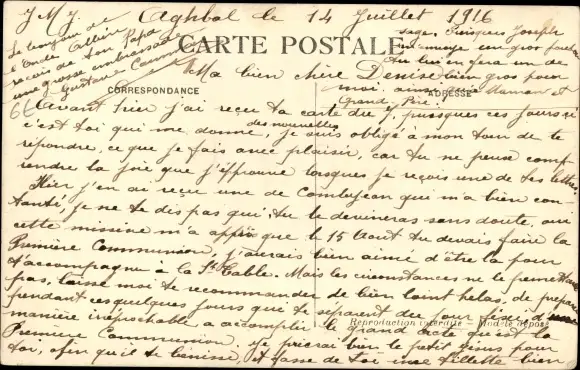 J.M.J. Aghbal le 14 Juillet 1916
Le tonton de
reçois de ton Papa
une grosse embrassade
Gustave
sage. Puisque Joseph
tu lui en fera un de
bien gros pour
moi, ainsi maman et
Grand Père.
CARTE POSTALE
Ma bien chère Denise
CORRESPONDANCE
ADRESSE
Avant hier j'ai reçu ta carte du 7, puisque ces jours ci
c'est toi qui me donne des nouvelles, je suis obligé à mon tour de te
répondre, ce que je fais avec plaisir, car tu ne peuse comp
rendre la joie que j'éprouve lorsque je reçois une de tes lettres.
Hier j'en ai reçu une de Combejean qui m'a bien con-
tenté, je ne te dis pas qui, tu le devineras sans doute, sur
cette missive m'a appris que le 15 Aout tu devais faire la
Première Communion, j'aurais bien aimé d'être là pour
t'accompagner à la Ste Table. Mais les circonstances ne le permettant
pas, laisse moi te recommander de bien loin helas, de préparer
pendant ces quelques jours que te séparent du jour fixé, d'une
manière irréprochable, a accomplir le grand acte qu'est la
Reproduction interdite - Modèle déposé
Première Communion. Je prierai bien le petit Jésus pour
toi, afin qu'il te bénisse, et fasse de toi une fillette bien